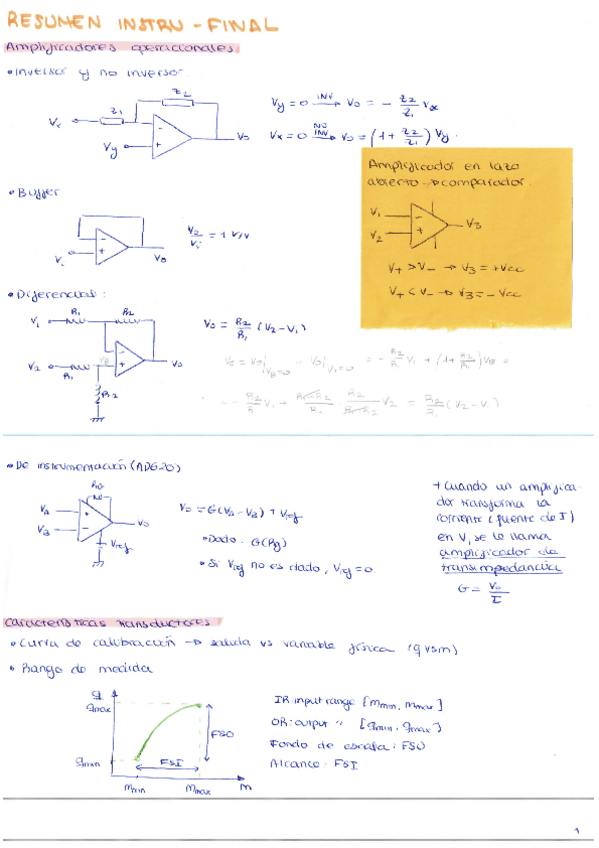 RESUMEN INSTRU - FINAL
Amplificadores operacionales
• Inversor y no inversor.
Vx
Z1
Z2
Vy
Vo
Vy = 0 INV → Vo = - Z2/Z1 Vx
Vx = 0 NO INV → Vo = (1 + Z2/Z1) Vy.
Amplificador en lazo
abierto → comparador.
V1
V2
V3
V+ > V- → V3 = +Vcc
V+ < V- → V3 = -Vcc
• Buffer
Vi
Vo
Vo/Vi = 1 V/V
• Diferencial:
V1
R1
R2
V2
R1
VB
R2
Vo
Vo = R2/R1 (V2 - V1)
= - R2/R1 V1 + (1 + R2/R1) VB =
= - R2/R1 V1 + R1+R2/R1 · R2/R1+R2 V2 = R2/R1 (V2 - V1)
• De instrumentación (AD620)
RG
VA
VB
Vo
Vref
Vo = G(VA - VB) + Vref
• Dado: G(Rg)
• Si Vref no es dado, Vref = 0
+ Cuando un amplifica-
dor transforma la
corriente (fuente de I)
en V, se le llama
amplificador de
transimpedancia
G = Vo/I
Características transductores
• Curva de calibración → salida vs variable física (q vs m)
• Rango de medida
q
qmax
qmin
FSO
FSI
mmin
mmax
m
IR: input range [mmin, mmax]
OR: output " [qmin, qmax]
Fondo de escala: FSO
Alcance: FSI
1